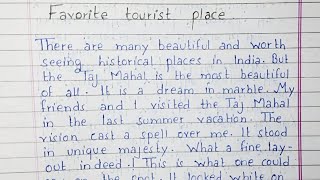 Favorite tourist place
There are many beautiful and worth
seeing historical places in India. But
the Taj Mahal is the most beautiful
of all. It is a dream in marble. My
friends and I visited the Taj Mahal
in the last summer vacation. The
vision cast a spell over me. It stood
in unique majesty. What a fine lay-
out indeed! This is what one could
say on the spot. It looked white on